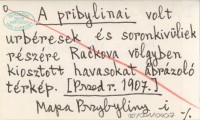 A pribylinai volt
urbéresek és soronkivüliek
részére Račkova völgyben
kiosztott havasokat ábrázoló
térkép. [Pzedr. 1907.]
Mapa Przybyliny i %.